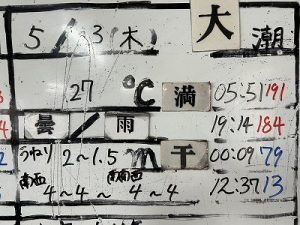 5/3(木) 大潮
27℃ 満 05:51 191
曇/雨 19:14 184
うねり 2~1.5m 干 00:09 79
南西 南南西 12:37 13
4~4~4~4